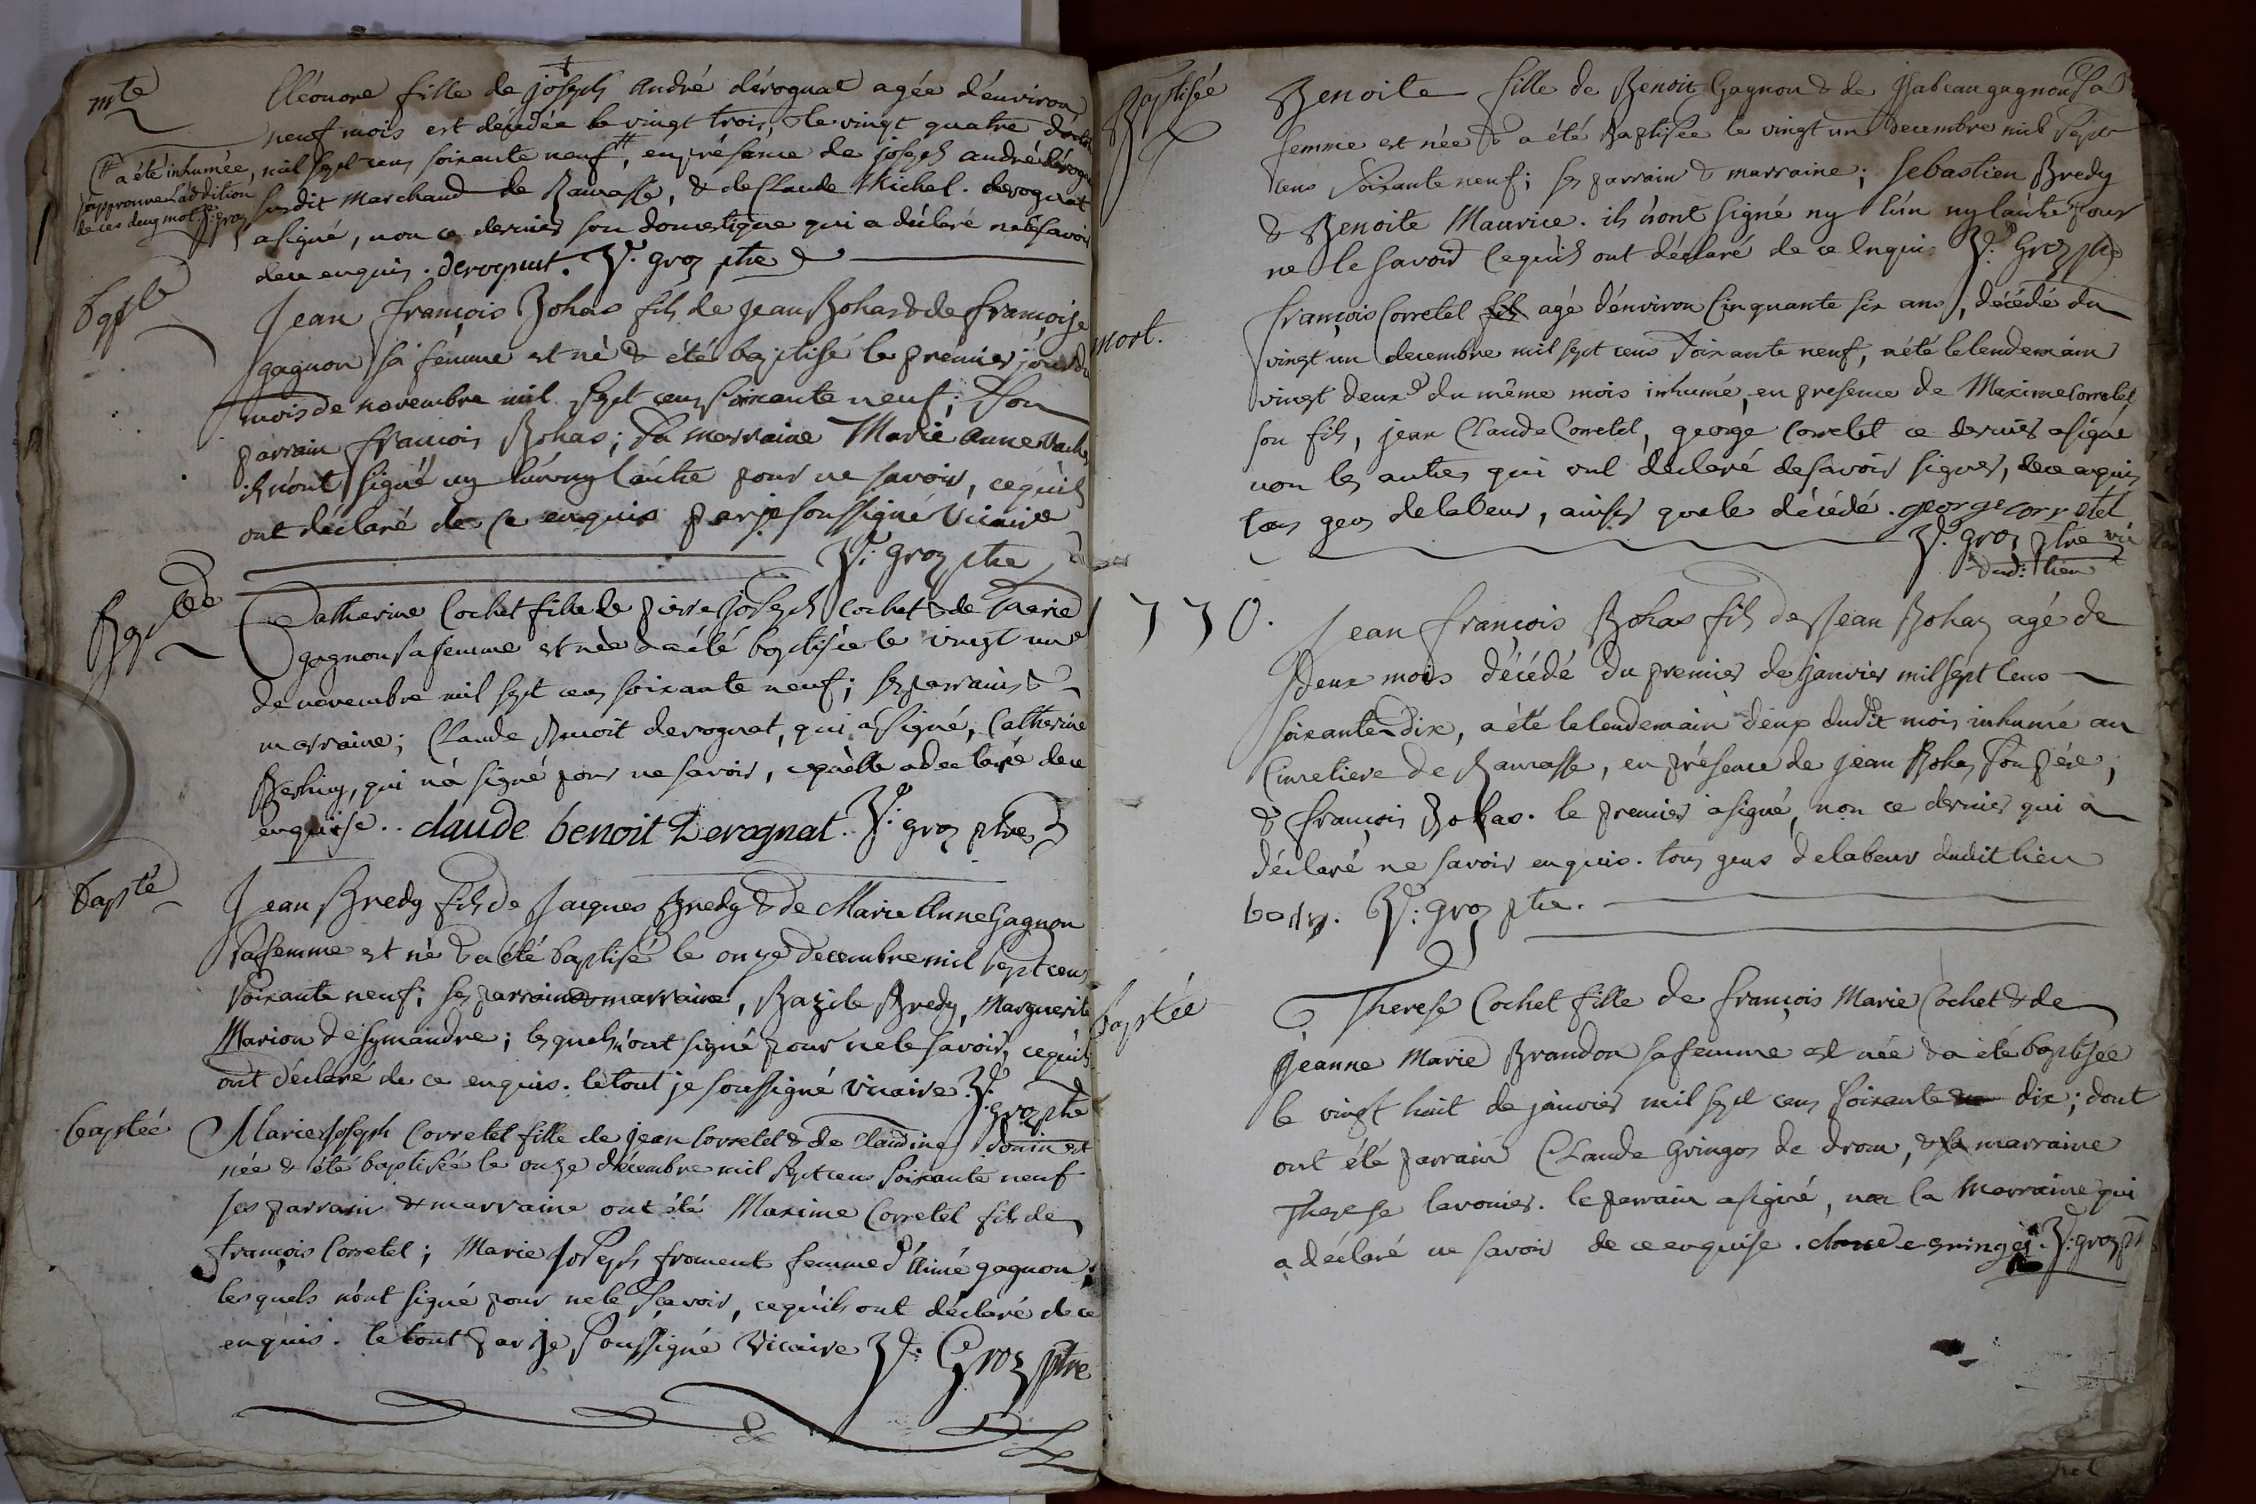 mte
Eléonore fille de joseph andré dérognat agée d'énviron
neuf mois est décédée le vingt trois, & le vingt quatre d'octob
(# a été inhumée, mil sept cens soixante neuf #, en présence de joseph andré dérogn
japprouve l'addition
de ces deux mots. gros
susdit marchand de Ramasse, & de Claude Michel. derognat
a signé, non ce dernier son domestique qui a déclaré ne le savoir
de ce enquis. derognat. gros ptre
bapt
Jean françois Bohas fils de jean Bohas & de françoise
gagnon sa femme est né & été baptisé le premier jour du
mois de novembre mil sept cens soixante neuf; son
parrain francois Bohas; sa marraine Marie Anne
ils n'ont signé ny l'un ny l'autre pour ne savoir, ce qu'ils
ont déclaré de ce enquis par je soussigné vicaire
gros ptre
Catherine Cochet fille de pierre joseph cochet & de Marie
gagnon sa femme est née & a été baptisée le vingt un
de novembre mil sept cens soixante neuf; ses parrain &
marraine; Claude Benoit derognat, qui a signé, Catherine
qui n'a signé pour ne savoir, ce qu'elle a declaré de ce
enquise.. claude benoit Derognat. gros ptre
bapté
Jean Bredy fils de Jacques Bredy & de Marie Anne Gagnon
sa femme est né & a été baptisé le onze decembre mil sept cens
soixante neuf; ses parrain & marraine, Bazile Bredy, Marguerite
Marion de symandre; lesquels n'ont signé pour ne le savoir, ce qu'ils
ont déclaré de ce enquis. le tout je soussigné vicaire
gros ptre
baptée
Marie Joseph Corretel fille de jean Corretel & de Claudine donin est
née & été baptisée le onze décembre mil sept cens soixante neuf
ses parrain & marraine ont été Maxime Corretel fils de
françois Corretel; Marie Joseph froment femme d'Aimé gagnon;
lesquels n'ont signé pour ne le sçavoir, ce qu'ils ont déclaré de ce
enquis. le tout par je soussigné vicaire Gros ptre
Baptisée
Benoite fille de Benoit Gagnon & de Isabeau gagnon sa
femme est née & a été Baptisée le vingt un decembre mil sept
cens soixante neuf; ses parrain & marraine; Sebastien Bredy
& Benoite Maurice. ils n'ont signé ny l'un ny l'autre pour
ne le savoir ce qu'ils ont déclaré de ce enquis Gros ptre
mort.
françois Corretel fils agé d'énviron Cinquante six ans, décédé du
vingt un decembre mil sept cens soixante neuf, a été le lendemain
vingt deux du même mois inhumé, en presence de Maxime Corretel
son fils, jean Claude Corretel, george Corretel ce dernier a signé
non les autres qui ont déclaré de savoir signer, de ce enquis
tous gens de labeur, ainsy que le décédé. george corretel
gros ptre vic
dud: lieu
1770.
Jean françois Bohas fils de Jean Bohas agé de
deux mois décédé du premier de janvier mil sept cens
soixante dix, a été le lendemain deux dudit mois inhumé au
Cimetiere de Ramasse, en présence de jean Bohas son pére;
& françois Bohas. le premier a signé, non ce dernier qui a
déclaré ne savoir enquis. tous gens de labeur dudit lieu
gros ptre.
baptée
Therese Cochet fille de françois Marie Cochet & de
Jeanne Marie Brandon sa femme est née & a été baptisée
le vingt huit de janvier mil sept cens soixante dix; dont
ont été parrain Claude Gringoz de drom, & sa marraine
Therese lavonier. le parrain a signé, non la marraine qui
a déclaré ne savoir de ce enquise. gros ptre